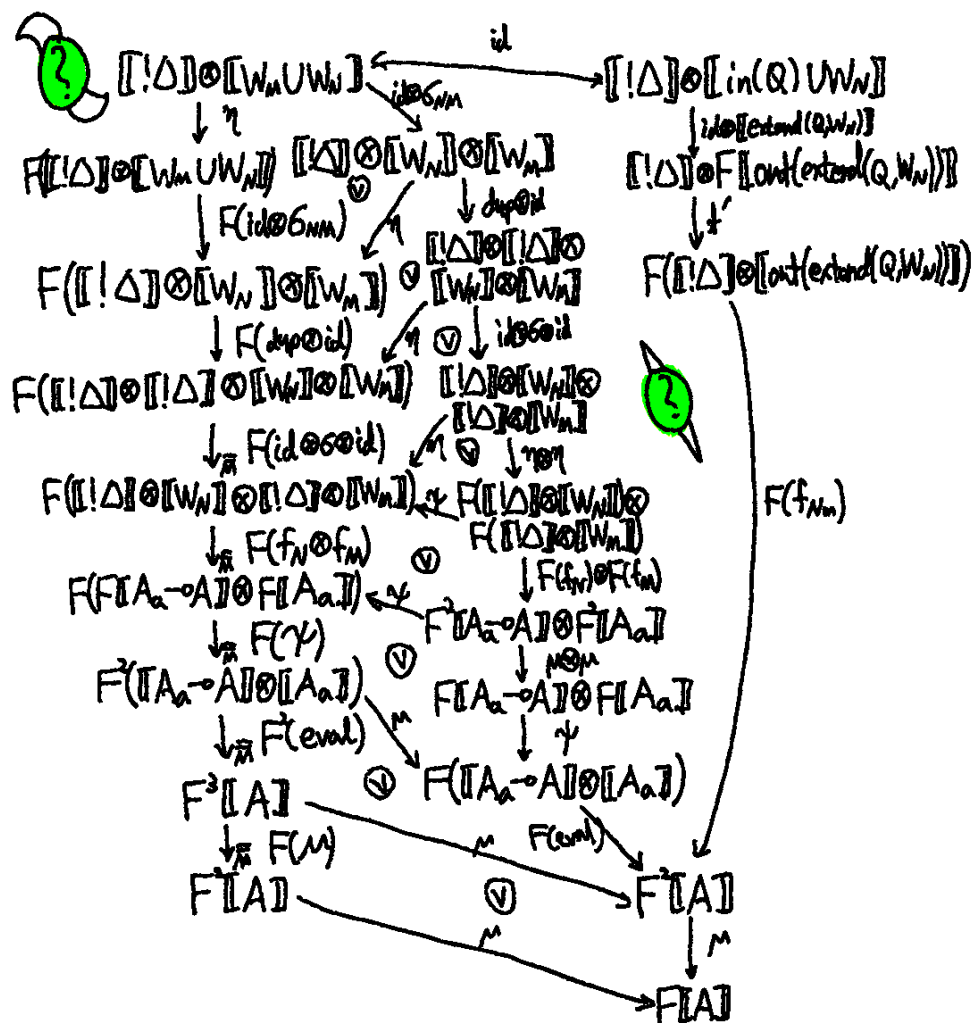 id
? ⟦!Δ⟧⊗⟦W_M∪W_N⟧ id⊗σ_NM ⟦!Δ⟧⊗⟦in(Q)∪W_N⟧
↓η ↓id⊗⟦extend(Q,W_N)⟧
F(⟦!Δ⟧⊗⟦W_M∪W_N⟧) ⟦!Δ⟧⊗⟦W_N⟧⊗⟦W_M⟧ ⟦!Δ⟧⊗F⟦out(extend(Q,W_N))⟧
↓F(id⊗σ_NM) Ⓥ η ↓dup⊗id ↓t'
⟦!Δ⟧⊗⟦!Δ⟧⊗
F(⟦!Δ⟧⊗⟦W_N⟧⊗⟦W_M⟧) Ⓥ ⟦W_N⟧⊗⟦W_M⟧ F(⟦!Δ⟧⊗⟦out(extend(Q,W_N))⟧)
↓F(dup⊗id) η Ⓥ ↓id⊗σ⊗id
F(⟦!Δ⟧⊗⟦!Δ⟧⊗⟦W_N⟧⊗⟦W_M⟧) ⟦!Δ⟧⊗⟦W_N⟧⊗ ?
⟦!Δ⟧⊗⟦W_M⟧
↓F(id⊗σ⊗id) η Ⓥ ↓η⊗η
F(⟦!Δ⟧⊗⟦W_N⟧⊗⟦!Δ⟧⊗⟦W_M⟧) ψ F(⟦!Δ⟧⊗⟦W_N⟧)⊗
F(⟦!Δ⟧⊗⟦W_M⟧) F(f_Nm)
↓F(f_N⊗f_M) Ⓥ ↓F(f_N)⊗F(f_M)
F(F⟦A_a⊸A⟧⊗F⟦A_a⟧) ψ F²⟦A_a⊸A⟧⊗F²⟦A_a⟧
↓F(ψ) Ⓥ ↓μ⊗μ
F²(⟦A_a⊸A⟧⊗⟦A_a⟧) F⟦A_a⊸A⟧⊗F⟦A_a⟧
↓F²(eval) μ ↓ψ
F³⟦A⟧ Ⓥ F(⟦A_a⊸A⟧⊗⟦A_a⟧)
↓F(μ) μ F(eval)
F²⟦A⟧ Ⓥ F²⟦A⟧
μ ↓μ
F⟦A⟧